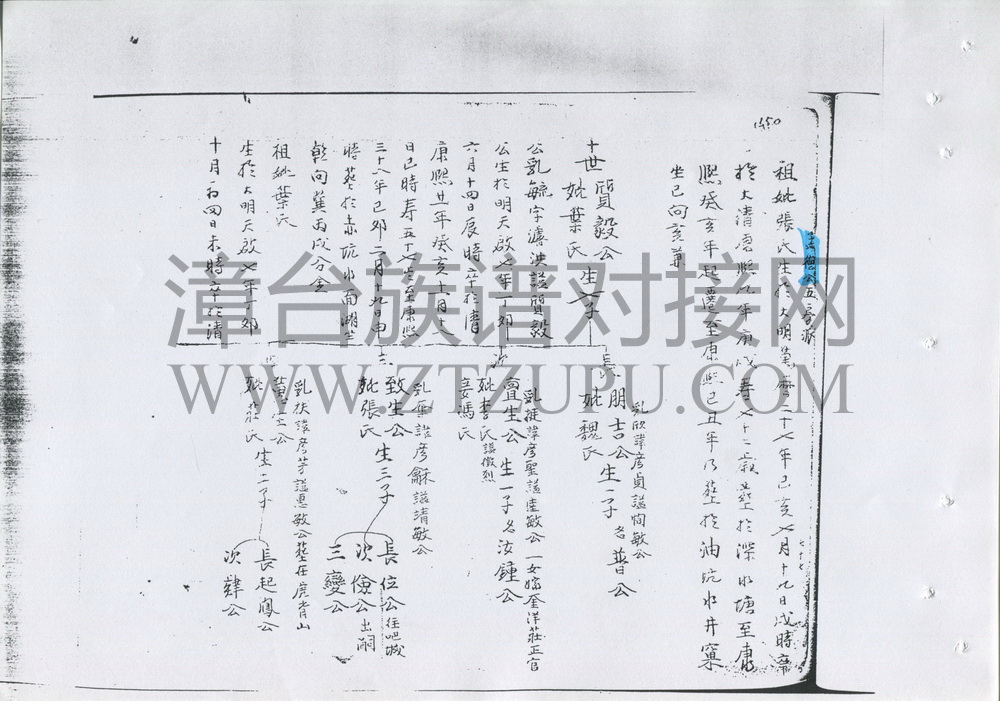 1450
五房派
祖妣張氏生於大明萬曆二十七年己亥七月十九日戌時卒
於大清康熙九年庚戌壽七十二歲葬於深水塘至康
熙癸亥年起遷至康熙己丑年乃葬於油坑水井窠
坐巳向亥兼
十世質毅公
妣葉氏 生子
公乳毓字濬泱諡質毅
公生於明天啟七年丁卯
六月十四日辰時卒於清
康熙廿年癸亥十一月十八
日巳時壽五十七至康熙
三十八年己卯二月十九日申
時葬於赤坑水面湖坐
乾向巽丙戌分金
祖妣葉氏
生於大明天啟七年丁卯
十月初四日未時卒於清
長
乳欣諱彥貞諡恂敏公
朋吉公 生一子名普公
妣魏氏
次
乳挺諱彥聖諡達敏公一女嫁奎洋莊正官
亶生公 生一子名汝鍾公
妣李氏諡徽烈
妾馮氏
三
乳雍諡彥龢諡靖敏公
致生公 生三子
妣張氏
長位公往吧城
次儉公出嗣
三變公
四
乳扶諱彥芳諡惠敏公葬在虎背山
生公
妣莊氏 生二子
長起鳳公
次肄公
漳台族谱对接网
WWW.ZTZUPU.COM